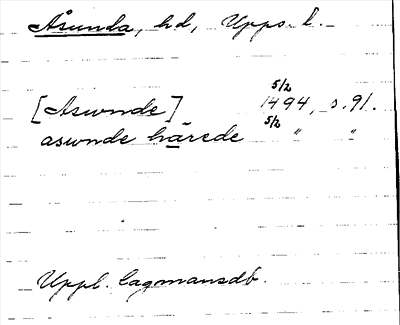 Åsunda, hd, Upps. l.
[Aswnde] 5/2 1494, s. 91.
aswnde härede 5/2 " "
Uppl. lagmansdb.